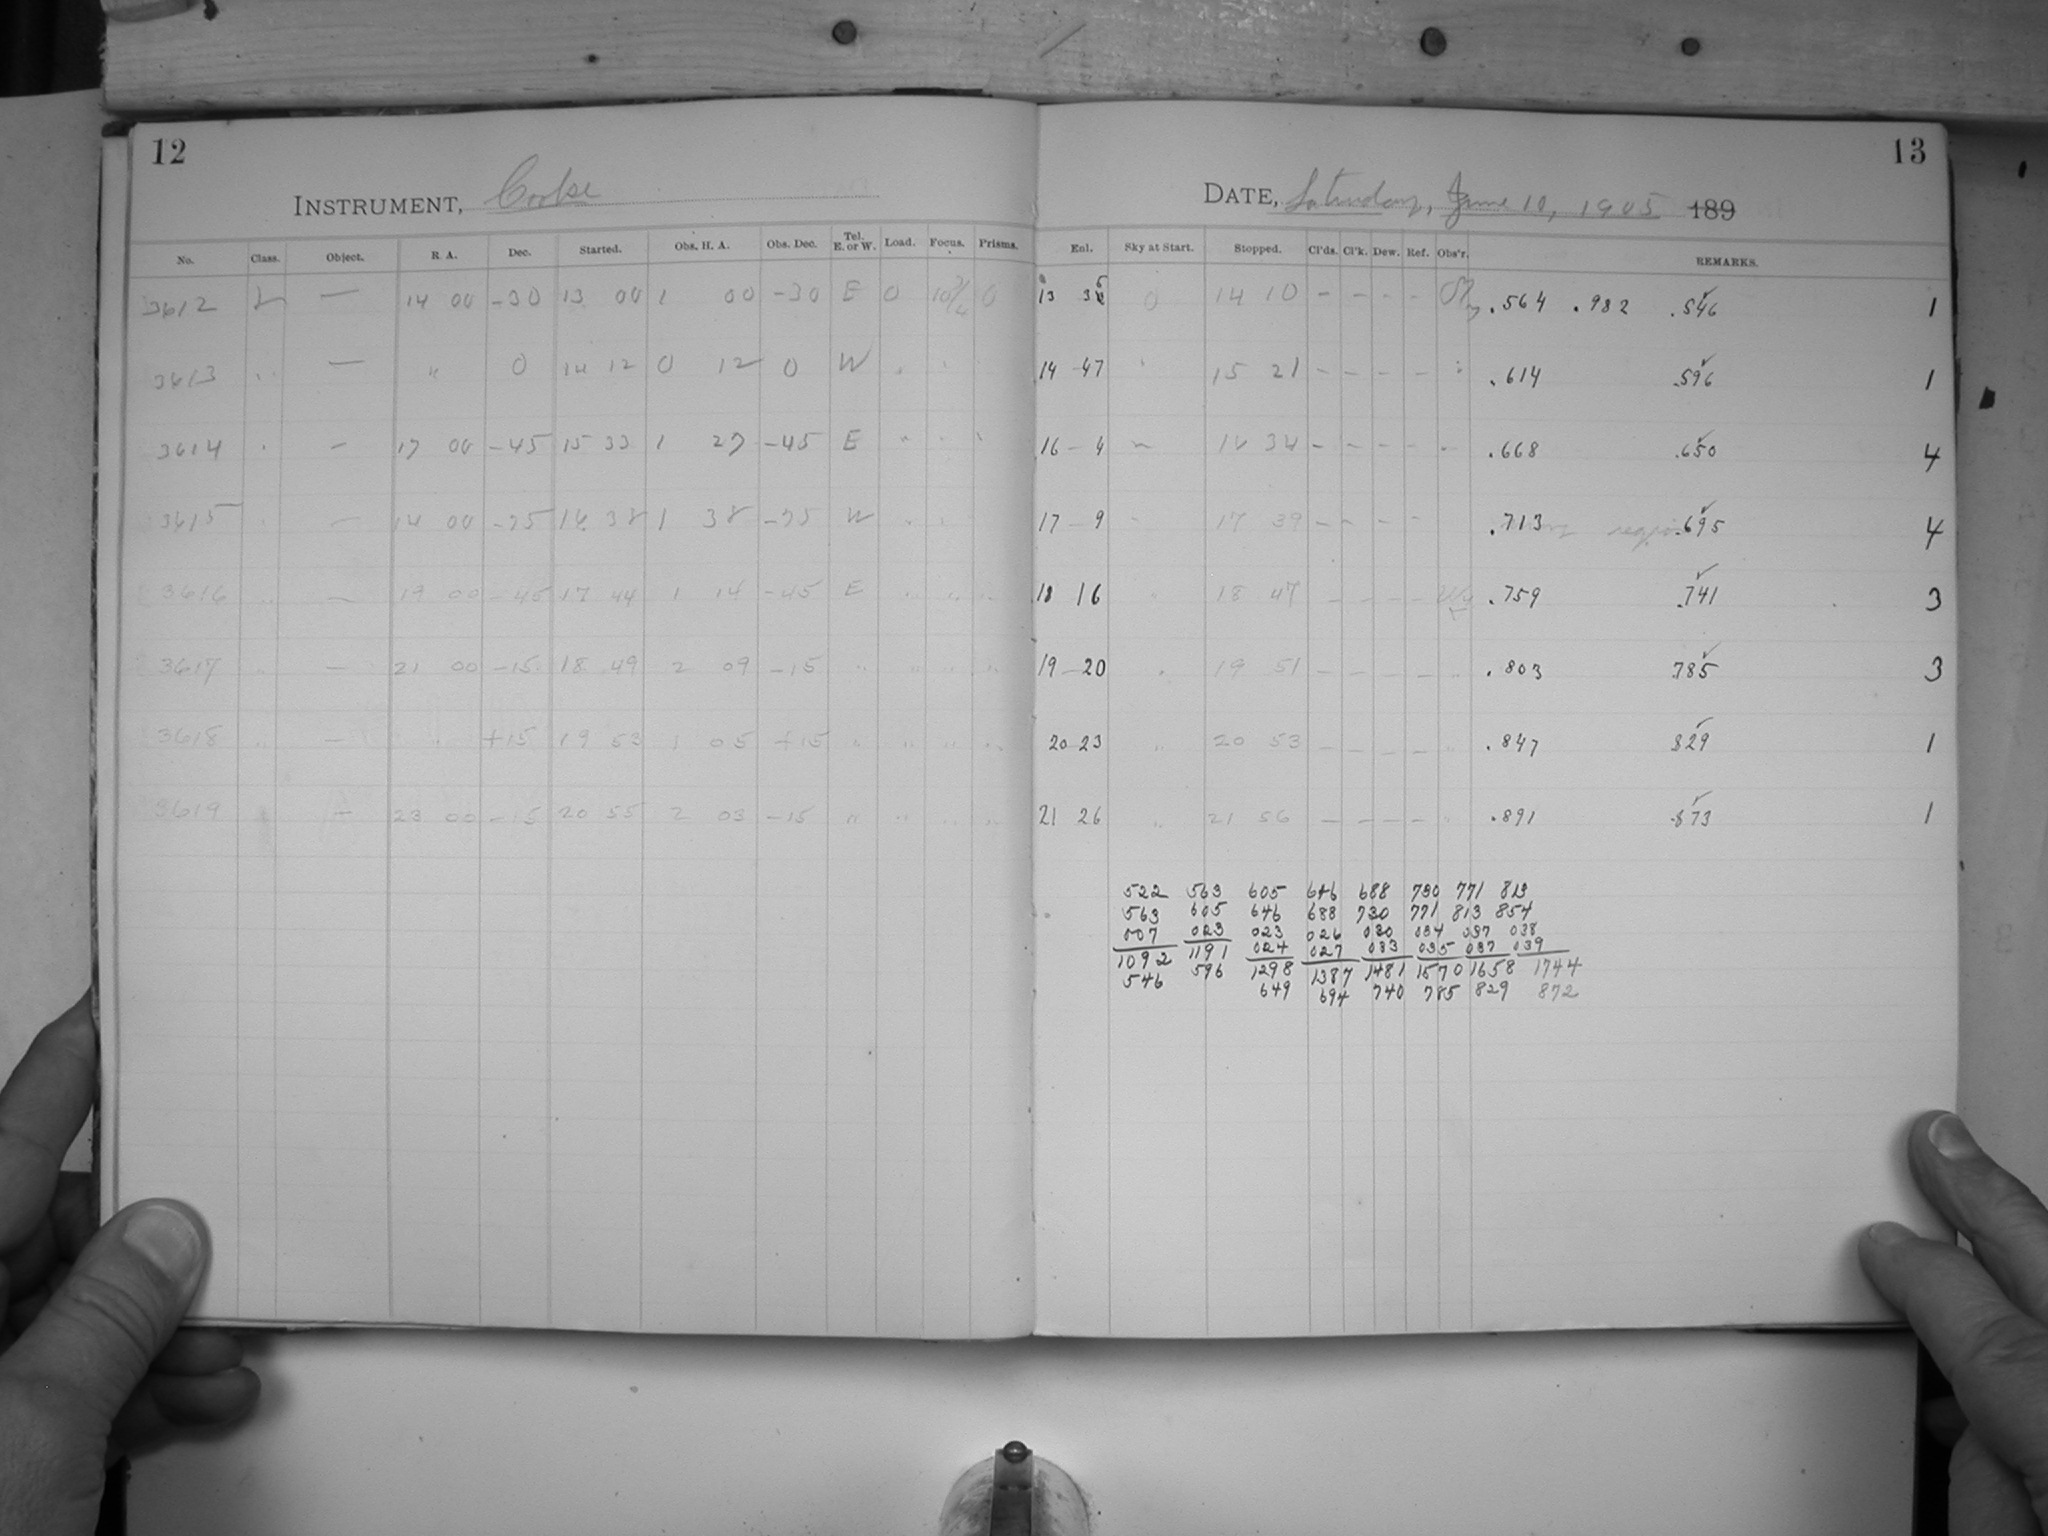 12
INSTRUMENT, Cooke
No. Class. Object. R. A. Dec. Started. Obs. H. A. Obs. Dec. Tel. E. or W. Load. Focus. Prisms.
3612 L — 14 00 -30 13 00 1 00 -30 E 0 10 3/4 0
3613 " — " 0 14 12 0 12 0 W " "
3614 " — 17 00 -45 15 33 1 27 -45 E " " "
3615 " — 14 00 -75 16 38 1 38 -75 W " "
3616 " — 19 00 -45 17 44 1 14 -45 E " " "
3617 " — 21 00 -15 18 49 2 09 -15 " " " "
3618 " — " +15 19 53 1 05 +15 " " " "
3619 " — 23 00 -15 20 55 2 03 -15 " " " "
13
DATE, Saturday, June 10, 1905 189
Enl. Sky at Start. Stopped. Cl'ds. Cl'k. Dew. Ref. Obs'r. REMARKS.
13 35 0 14 10 - - - - .564 .982 .546 1
14 47 " 15 21 - - - - " .614 .596 1
16 - 4 ~ 16 34 - - - - " .668 .650 4
17 - 9 " 17 39 - - - - .713 region .695 4
18 16 " 18 47 - - - - .759 .741 3
19 - 20 " 19 51 - - - - " .803 .785 3
20 23 " 20 53 - - - - " .847 829 1
21 26 " 21 56 - - - - " .891 .873 1
522 563 605 646 688 730 771 813
563 605 646 688 730 771 813 854
007 023 023 026 030 034 037 038
1092 1191 024 027 033 035 037 039
546 596 1298 1387 1481 1570 1658 1744
649 694 740 785 829 872